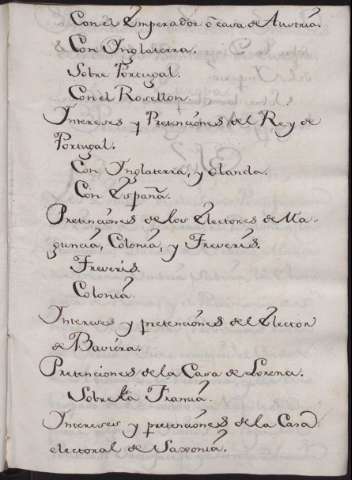 Con el Emperador ò casa de Austria.
Con Inglaterra.
Sobre Portugal.
Con el Rosellon.
Intereses y Pretenciònes del Rey de
Portugal.
Con Inglaterra, y olanda.
Con España.
Pretenciònes de los Electores de Ma-
guncia, Colonia, y Treveris.
Treveris.
Colonia.
Intereses y pretenciònes del Elector
de Baviéra.
Pretenciones de la Casa de Lorena.
Sobre la Francia.
Intereses y pretenciònes de la Casa
electoral de Saxonia.